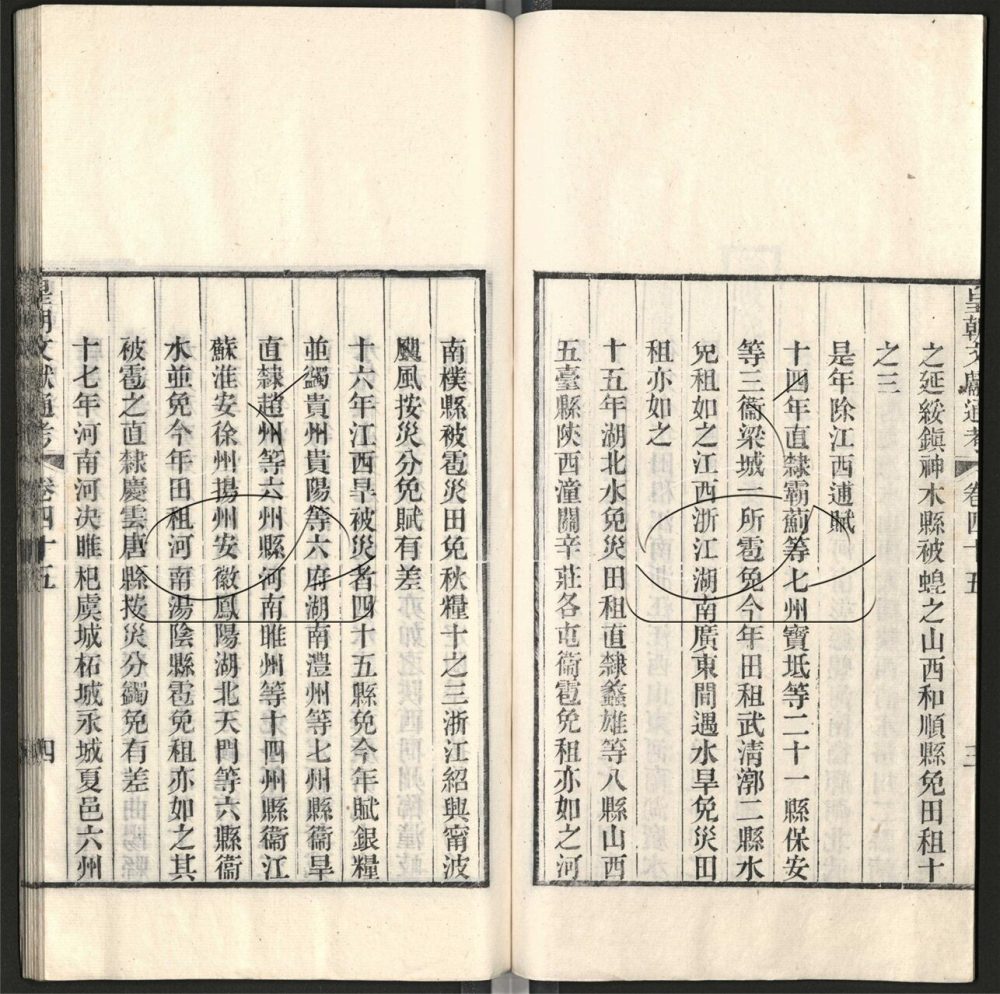 皇朝文獻通考 卷四十五 三
之延綏鎮神木縣被蝗之山西和順縣免田租十
之三
是年除江西逋賦
十四年直隸霸薊等七州寶坻等二十一縣保安
等三衞梁城一所雹免今年田租武清漷二縣水
免租如之江西浙江湖南廣東間遇水旱免災田
租亦如之
十五年湖北水免災田租直隸蠡雄等八縣山西
五臺縣陝西潼關辛莊各屯衞雹免租亦如之河
南樸縣被雹災田免秋糧十之三浙江紹興甯波
颶風按災分免賦有差
十六年江西旱被災者四十五縣免今年賦銀糧
並蠲貴州貴陽等六府湖南澧州等七州縣衞旱
直隸趙州等六州縣河南睢州等十四州縣衞江
蘇淮安徐州揚州安徽鳳陽湖北天門等六縣衞
水並免今年田租河南湯陰縣雹免租亦如之其
被雹之直隸慶雲唐縣按災分蠲免有差
十七年河南河決睢杞虞城柘城永城夏邑六州
皇朝文獻通考 卷四十五 四